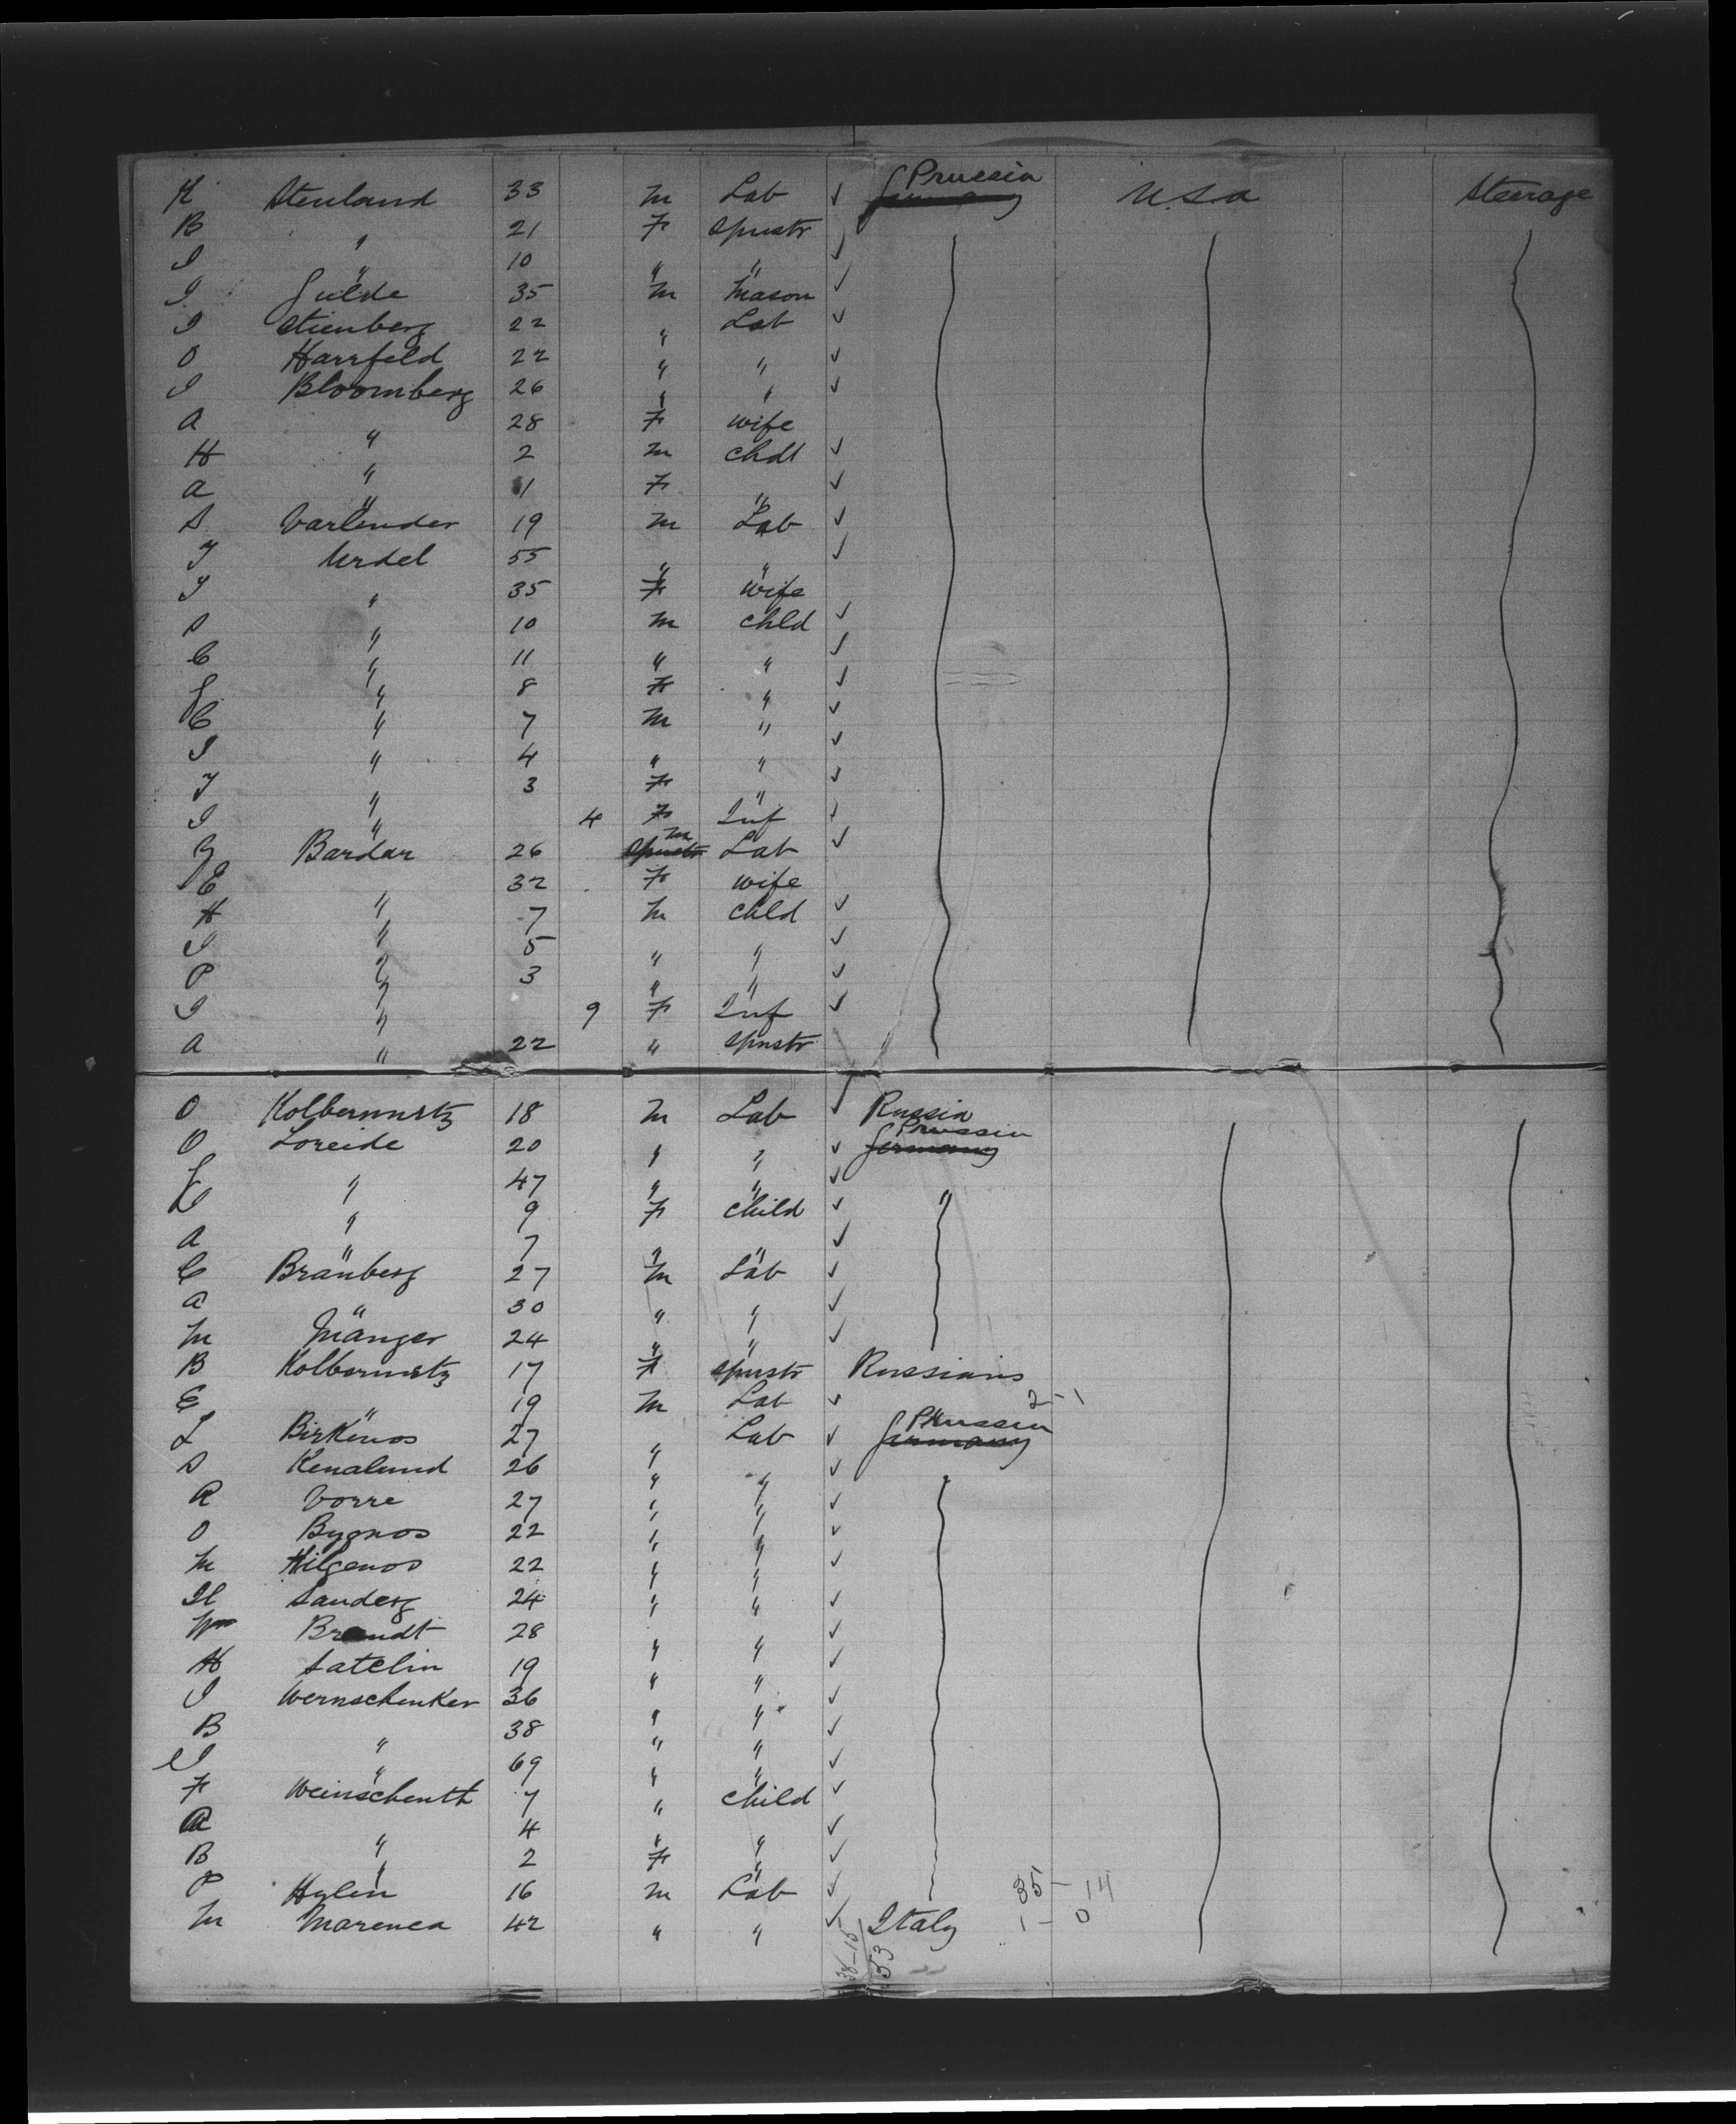 K Stenland 33 M Lab ✓ Prussia Germany U.S.A Steerage
B " 21 F Spnstr ✓
I " 10 " " ✓
I Gulde 35 M Mason ✓
I Stienberg 22 " Lab ✓
O Harrfeld 22 " " ✓
I Bloomberg 26 " " ✓
A " 28 F Wife
H " 2 M Chdl ✓
A " 1 F " ✓
S Varlender 19 M Lab ✓
J Urdel 55 " " ✓
J " 35 F Wife
S " 10 M Chld ✓
C " 11 " " ✓
L " 8 F " ✓
C " 7 M " ✓
I " 4 " " ✓
J " 3 F " ✓
I " 4 F Inf ✓
G Bardar 26 Spnstr M Lab ✓
E " 32 F Wife
H " 7 M Chld ✓
I " 5 " " ✓
P " 3 " " ✓
I " 9 F Inf ✓
A " 22 " Spnstr
O Kolbermurtz 18 M Lab ✓ Russia
O Loreide 20 " " ✓ Prussia Germany
L " 47 " " ✓
" 9 F Child ✓ "
A " 7 " " ✓
C Bränberg 27 M Lab ✓
A " 30 " " ✓
M Mänger 24 " " ✓
B Kolbermurtz 17 F Spnstr Russians
E " 19 M Lab ✓ 2-1
L Birkenos 27 " Lab ✓ Prussia Germany
S Kenalund 26 " " ✓ "
R Vorre 27 " " ✓
O Bygnos 22 " " ✓
M Hilgenos 22 " " ✓
H Sanderg 24 " " ✓
Wm Brandt 28 " " ✓
H Satelin 19 " " ✓
I Wernschenker 36 " " ✓
B " 38 " " ✓
I " 69 " " ✓
F Weinschenth 7 " Child ✓
A " 4 " " ✓
B " 2 F " ✓
P Hylin 16 M Lab ✓ 35-14
M Marenca 42 " " ✓ Italy 1-0
38-15
53